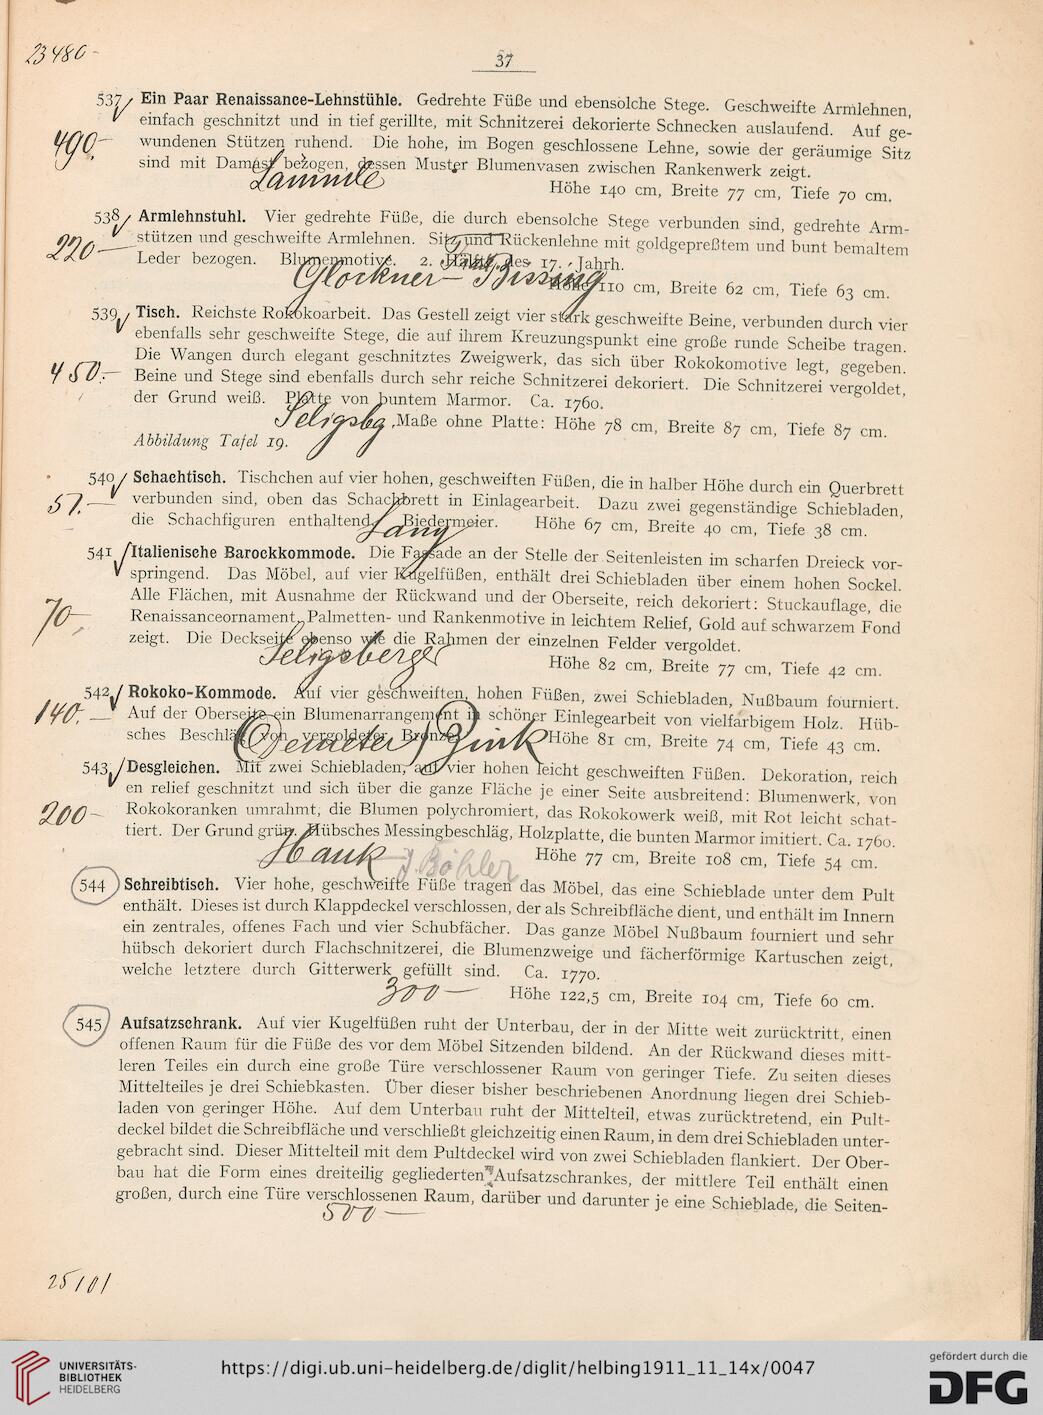 23480-
37
537 Ein Paar Renaissance-Lehnstühle. Gedrehte Füße und ebensolche Stege. Geschweifte Armlehnen,
einfach geschnitzt und in tief gerillte, mit Schnitzerei dekorierte Schnecken auslaufend. Auf ge-
490.- wundenen Stützen ruhend. Die hohe, im Bogen geschlossene Lehne, sowie der geräumige Sitz
sind mit Damast bezogen, dessen Muster Blumenvasen zwischen Rankenwerk zeigt.
Höhe 140 cm, Breite 77 cm, Tiefe 70 cm.
538 Armlehnstuhl. Vier gedrehte Füße, die durch ebensolche Stege verbunden sind, gedrehte Arm-
220- stützen und geschweifte Armlehnen. Sitz und Rückenlehne mit goldgepreßtem und bunt bemaltem
Leder bezogen. Blumenmotive. 2. Hälfte des 17. Jahrh.
Glockner- Bissing
Höhe 110 cm, Breite 62 cm, Tiefe 63 cm.
539 Tisch. Reichste Rokokoarbeit. Das Gestell zeigt vier stark geschweifte Beine, verbunden durch vier
ebenfalls sehr geschweifte Stege, die auf ihrem Kreuzungspunkt eine große runde Scheibe tragen.
Die Wangen durch elegant geschnitztes Zweigwerk, das sich über Rokokomotive legt, gegeben.
450.- Beine und Stege sind ebenfalls durch sehr reiche Schnitzerei dekoriert. Die Schnitzerei vergoldet,
der Grund weiß. Platte von buntem Marmor. Ca. 1760.
Seligsbg. Maße ohne Platte: Höhe 78 cm, Breite 87 cm, Tiefe 87 cm.
Abbildung Tafel 19.
540 Schachtisch. Tischchen auf vier hohen, geschweiften Füßen, die in halber Höhe durch ein Querbrett
51.- verbunden sind, oben das Schachbrett in Einlagearbeit. Dazu zwei gegenständige Schiebladen,
die Schachfiguren enthaltend. Biedermeier. Höhe 67 cm, Breite 40 cm, Tiefe 38 cm.
Lang
541 Italienische Barockkommode. Die Fassade an der Stelle der Seitenleisten im scharfen Dreieck vor-
springend. Das Möbel, auf vier Kugelfüßen, enthält drei Schiebladen über einem hohen Sockel.
Alle Flächen, mit Ausnahme der Rückwand und der Oberseite, reich dekoriert: Stuckauflage, die
70- Renaissanceornament, Palmetten- und Rankenmotive in leichtem Relief, Gold auf schwarzem Fond
zeigt. Die Deckseite ebenso wie die Rahmen der einzelnen Felder vergoldet.
Seligsberger Höhe 82 cm, Breite 77 cm, Tiefe 42 cm.
542 Rokoko-Kommode. Auf vier geschweiften, hohen Füßen, zwei Schiebladen, Nußbaum fourniert.
140.- Auf der Oberseite ein Blumenarrangement in schöner Einlegearbeit von vielfarbigem Holz. Hüb-
sches Beschläg von vergoldeter Bronze. Höhe 81 cm, Breite 74 cm, Tiefe 43 cm.
Demeter Zink
543 Desgleichen. Mit zwei Schiebladen, auf vier hohen leicht geschweiften Füßen. Dekoration, reich
en relief geschnitzt und sich über die ganze Fläche je einer Seite ausbreitend: Blumenwerk, von
200- Rokokoranken umrahmt, die Blumen polychromiert, das Rokokowerk weiß, mit Rot leicht schat-
tiert. Der Grund grün. Hübsches Messingbeschläg, Holzplatte, die bunten Marmor imitiert. Ca. 1760.
Hauk J. Böhler Höhe 77 cm, Breite 108 cm, Tiefe 54 cm.
544 Schreibtisch. Vier hohe, geschweifte Füße tragen das Möbel, das eine Schieblade unter dem Pult
enthält. Dieses ist durch Klappdeckel verschlossen, der als Schreibfläche dient, und enthält im Innern
ein zentrales, offenes Fach und vier Schubfächer. Das ganze Möbel Nußbaum fourniert und sehr
hübsch dekoriert durch Flachschnitzerei, die Blumenzweige und fächerförmige Kartuschen zeigt,
welche letztere durch Gitterwerk gefüllt sind. Ca. 1770.
300- Höhe 122,5 cm, Breite 104 cm, Tiefe 60 cm.
545 Aufsatzschrank. Auf vier Kugelfüßen ruht der Unterbau, der in der Mitte weit zurücktritt, einen
offenen Raum für die Füße des vor dem Möbel Sitzenden bildend. An der Rückwand dieses mitt-
leren Teiles ein durch eine große Türe verschlossener Raum von geringer Tiefe. Zu seiten dieses
Mittelteiles je drei Schiebkasten. Über dieser bisher beschriebenen Anordnung liegen drei Schieb-
laden von geringer Höhe. Auf dem Unterbau ruht der Mittelteil, etwas zurücktretend, ein Pult-
deckel bildet die Schreibfläche und verschließt gleichzeitig einen Raum, in dem drei Schiebladen unter-
gebracht sind. Dieser Mittelteil mit dem Pultdeckel wird von zwei Schiebladen flankiert. Der Ober-
bau hat die Form eines dreiteilig gegliederten Aufsatzschrankes, der mittlere Teil enthält einen
großen, durch eine Türe verschlossenen Raum, darüber und darunter je eine Schieblade, die Seiten-
500-
25101
UNIVERSITÄTS-
BIBLIOTHEK
HEIDELBERG
https://digi.ub.uni-heidelberg.de/diglit/helbing1911_11_14x/0047
gefördert durch die
DFG